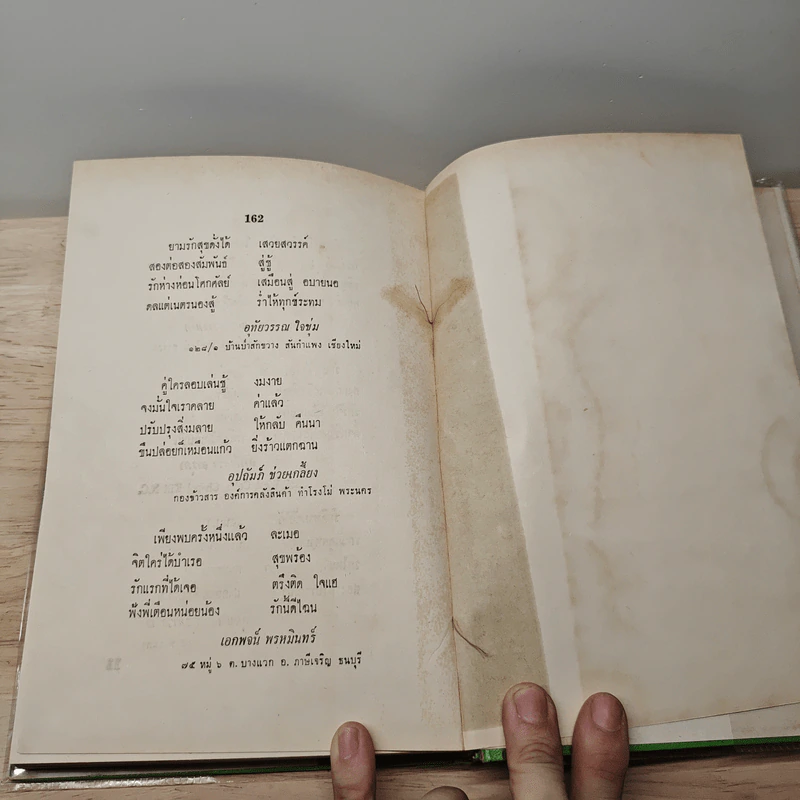 162
ยามรักสุขดั่งได้ เสวยสวรรค์
สองต่อสองสัมพันธ์ สู่ชู้
รักห่างห่อนโศกศัลย์ เสมือนสู่ อบายนอ
ดลแต่เนตรนองสู้ ร่ำไห้ทุกข์ระทม
อุทัยวรรณ ใจขุ่ม
๑๒๘/๑ บ้านบ่ำสักขวาง สันกำแพง เชียงใหม่
คู่ใครลอบเล่นชู้ งมงาย
จงมั่นใจเราคลาย ค่าแล้ว
ปรับปรุงสิ่งมลาย ให้กลับ คืนนา
ขืนปล่อยก็เหมือนแก้ว ยิ่งร้าวแตกฉาน
อุปถัมภ์ ช่วยเกลี้ยง
กองข้าวสาร องค์การคลังสินค้า ท่าโรงโม่ พระนคร
เพียงพบครั้งหนึ่งแล้ว ละเมอ
จิตใคร่ได้บำเรอ สุขพร้อง
รักแรกที่ได้เจอ ตรึงติด ใจแฮ
ฟังพี่เตือนหน่อยน้อง รักนี้ดีไฉน
เอกพจน์ พรหมินทร์
๗๕ หมู่ ๖ ต. บางแวก อ. ภาษีเจริญ ธนบุรี